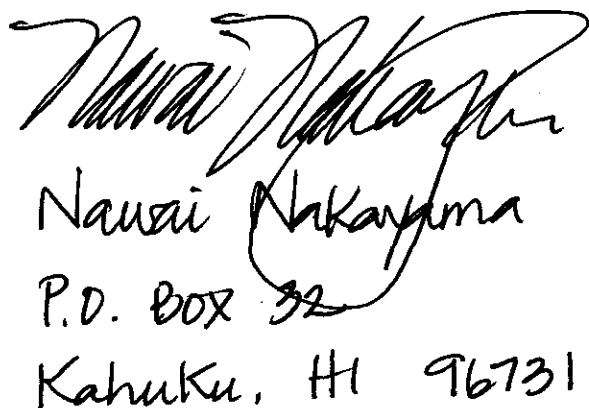 Nawai Nakayama
Nawai Nakayama
P.O. Box 32
Kahuku, HI 96731